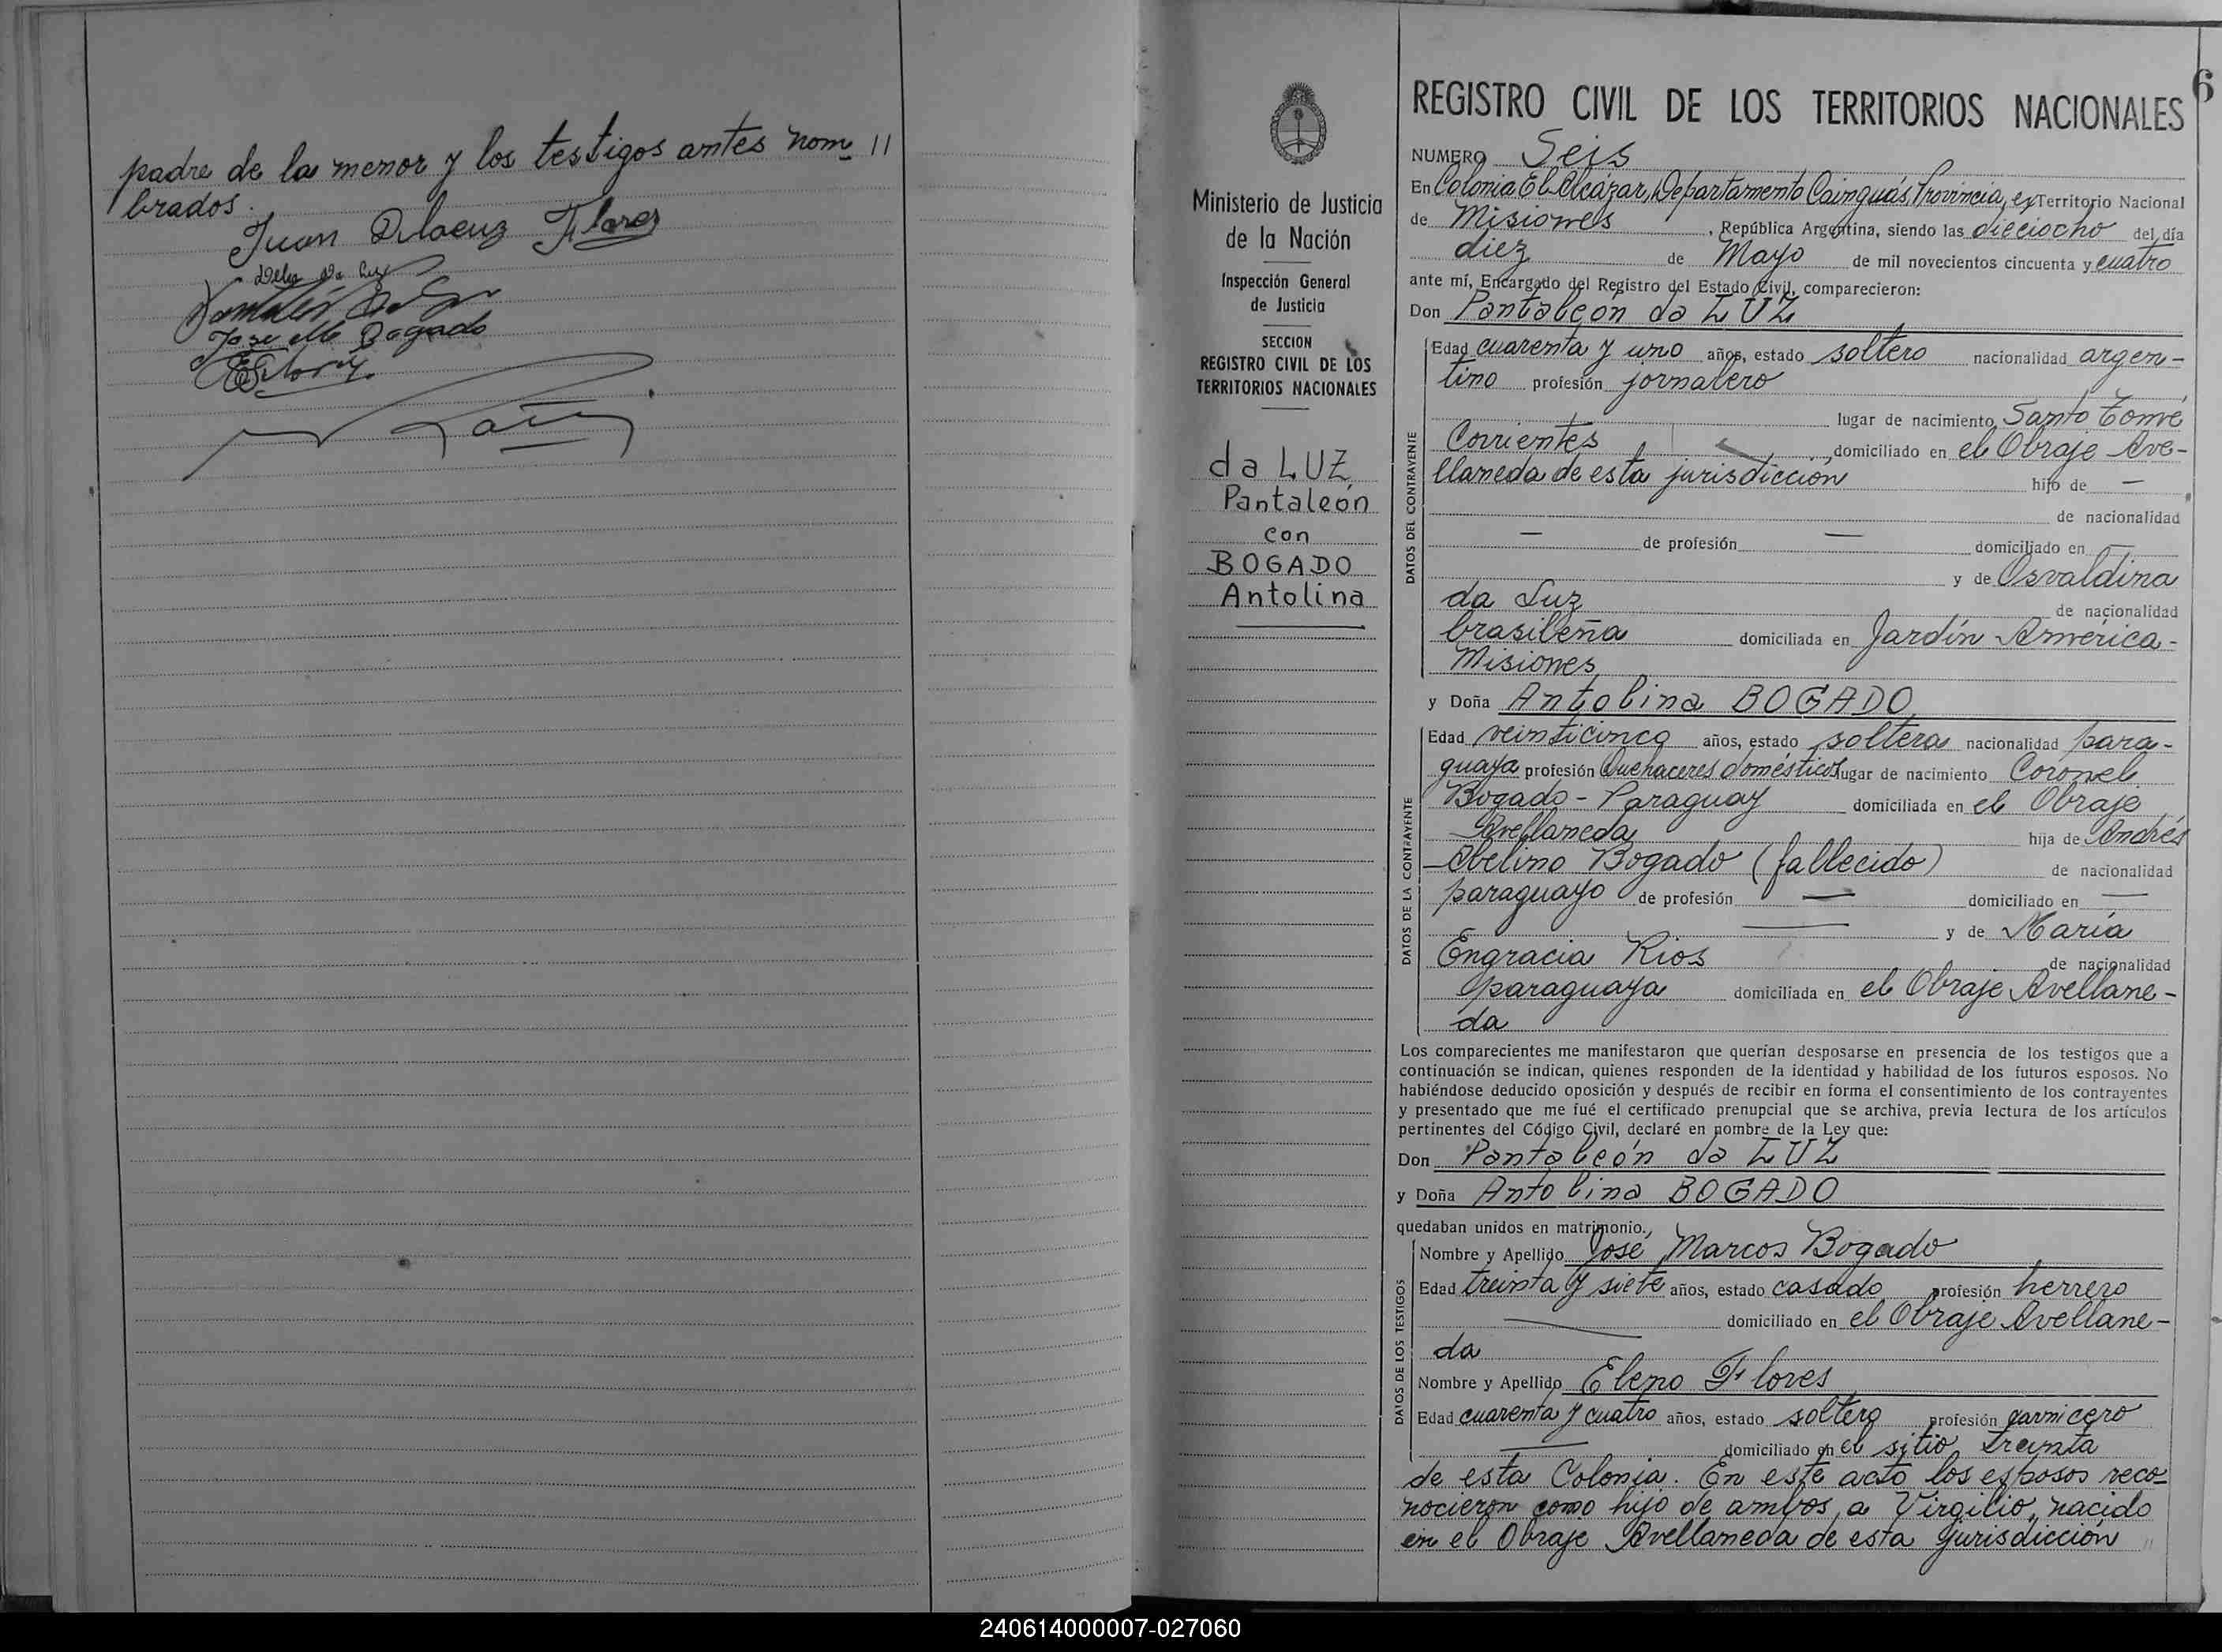 padre de la menor y los testigos antes nom
brados.
Juan Flores
Delia da Luz
Jose M Bogado
6
REGISTRO CIVIL DE LOS TERRITORIOS NACIONALES
NUMERO Seis
En Colonia El Alcázar, Departamento Cainguás, Provincia, ex Territorio Nacional
de Misiones, República Argentina, siendo las dieciocho del día
diez de Mayo de mil novecientos cincuenta y cuatro
ante mí, Encargado del Registro del Estado Civil, comparecieron:
Don Pantaleón da LUZ
Ministerio de Justicia
de la Nación
Inspección General
de Justicia
SECCION
REGISTRO CIVIL DE LOS
TERRITORIOS NACIONALES
da LUZ
Pantaleón
con
BOGADO
Antolina
DATOS DEL CONTRAYENTE
Edad cuarenta y uno años, estado soltero nacionalidad argen-
tino profesión jornalero
lugar de nacimiento Santo Tomé
Corrientes domiciliado en el Obraje Ave-
llaneda de esta jurisdicción hijo de —
de nacionalidad
— de profesión — domiciliado en —
y de Osvaldina
da Luz de nacionalidad
brasileña domiciliada en Jardín América -
Misiones
y Doña Antolina BOGADO
DATOS DE LA CONTRAYENTE
Edad veinticinco años, estado soltera nacionalidad para-
guaya profesión Quehaceres domésticos lugar de nacimiento Coronel
Bogado - Paraguay domiciliada en el Obraje
Avellaneda hija de Andrés
Abelino Bogado (fallecido) de nacionalidad
paraguayo de profesión — domiciliado en —
— y de María
Engracia Rios de nacionalidad
paraguaya domiciliada en el Obraje Avellane-
da
Los comparecientes me manifestaron que querían desposarse en presencia de los testigos que a
continuación se indican, quienes responden de la identidad y habilidad de los futuros esposos. No
habiéndose deducido oposición y después de recibir en forma el consentimiento de los contrayentes
y presentado que me fué el certificado prenupcial que se archiva, previa lectura de los artículos
pertinentes del Código Civil, declaré en nombre de la Ley que:
Don Pantaleón da LUZ
y Doña Antolina BOGADO
quedaban unidos en matrimonio.,
DATOS DE LOS TESTIGOS
Nombre y Apellido José Marcos Bogado
Edad treinta y siete años, estado casado profesión herrero
domiciliado en el Obraje Avellane-
da
Nombre y Apellido Eleno Flores
Edad cuarenta y cuatro años, estado soltero profesión carnicero
domiciliado en el sitio treinta
de esta Colonia. En este acto los esposos reco-
nocieron como hijo de ambos, a Virgilio, nacido
en el Obraje Avellaneda de esta jurisdicción
240614000007-027060